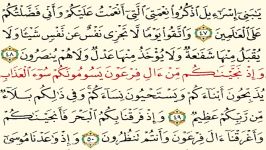 يَـٰبَنِىٓ إِسْرَٰٓءِيلَ ٱذْكُرُوا۟ نِعْمَتِىَ ٱلَّتِىٓ أَنْعَمْتُ عَلَيْكُمْ وَأَنِّى فَضَّلْتُكُمْ
عَلَى ٱلْعَـٰلَمِينَ ٤٧ وَٱتَّقُوا۟ يَوْمًا لَّا تَجْزِى نَفْسٌ عَن نَّفْسٍ شَيْـًٔا وَلَا
يُقْبَلُ مِنْهَا شَفَـٰعَةٌ وَلَا يُؤْخَذُ مِنْهَا عَدْلٌ وَلَا هُمْ يُنصَرُونَ ٤٨
وَإِذْ نَجَّيْنَـٰكُم مِّنْ ءَالِ فِرْعَوْنَ يَسُومُونَكُمْ سُوٓءَ ٱلْعَذَابِ
يُذَبِّحُونَ أَبْنَآءَكُمْ وَيَسْتَحْيُونَ نِسَآءَكُمْ وَفِى ذَٰلِكُم بَلَآءٌ
مِّن رَّبِّكُمْ عَظِيمٌ ٤٩ وَإِذْ فَرَقْنَا بِكُمُ ٱلْبَحْرَ فَأَنجَيْنَـٰكُمْ
وَأَغْرَقْنَآ ءَالَ فِرْعَوْنَ وَأَنتُمْ تَنظُرُونَ ٥٠ وَإِذْ وَٰعَدْنَا مُوسَىٰٓ